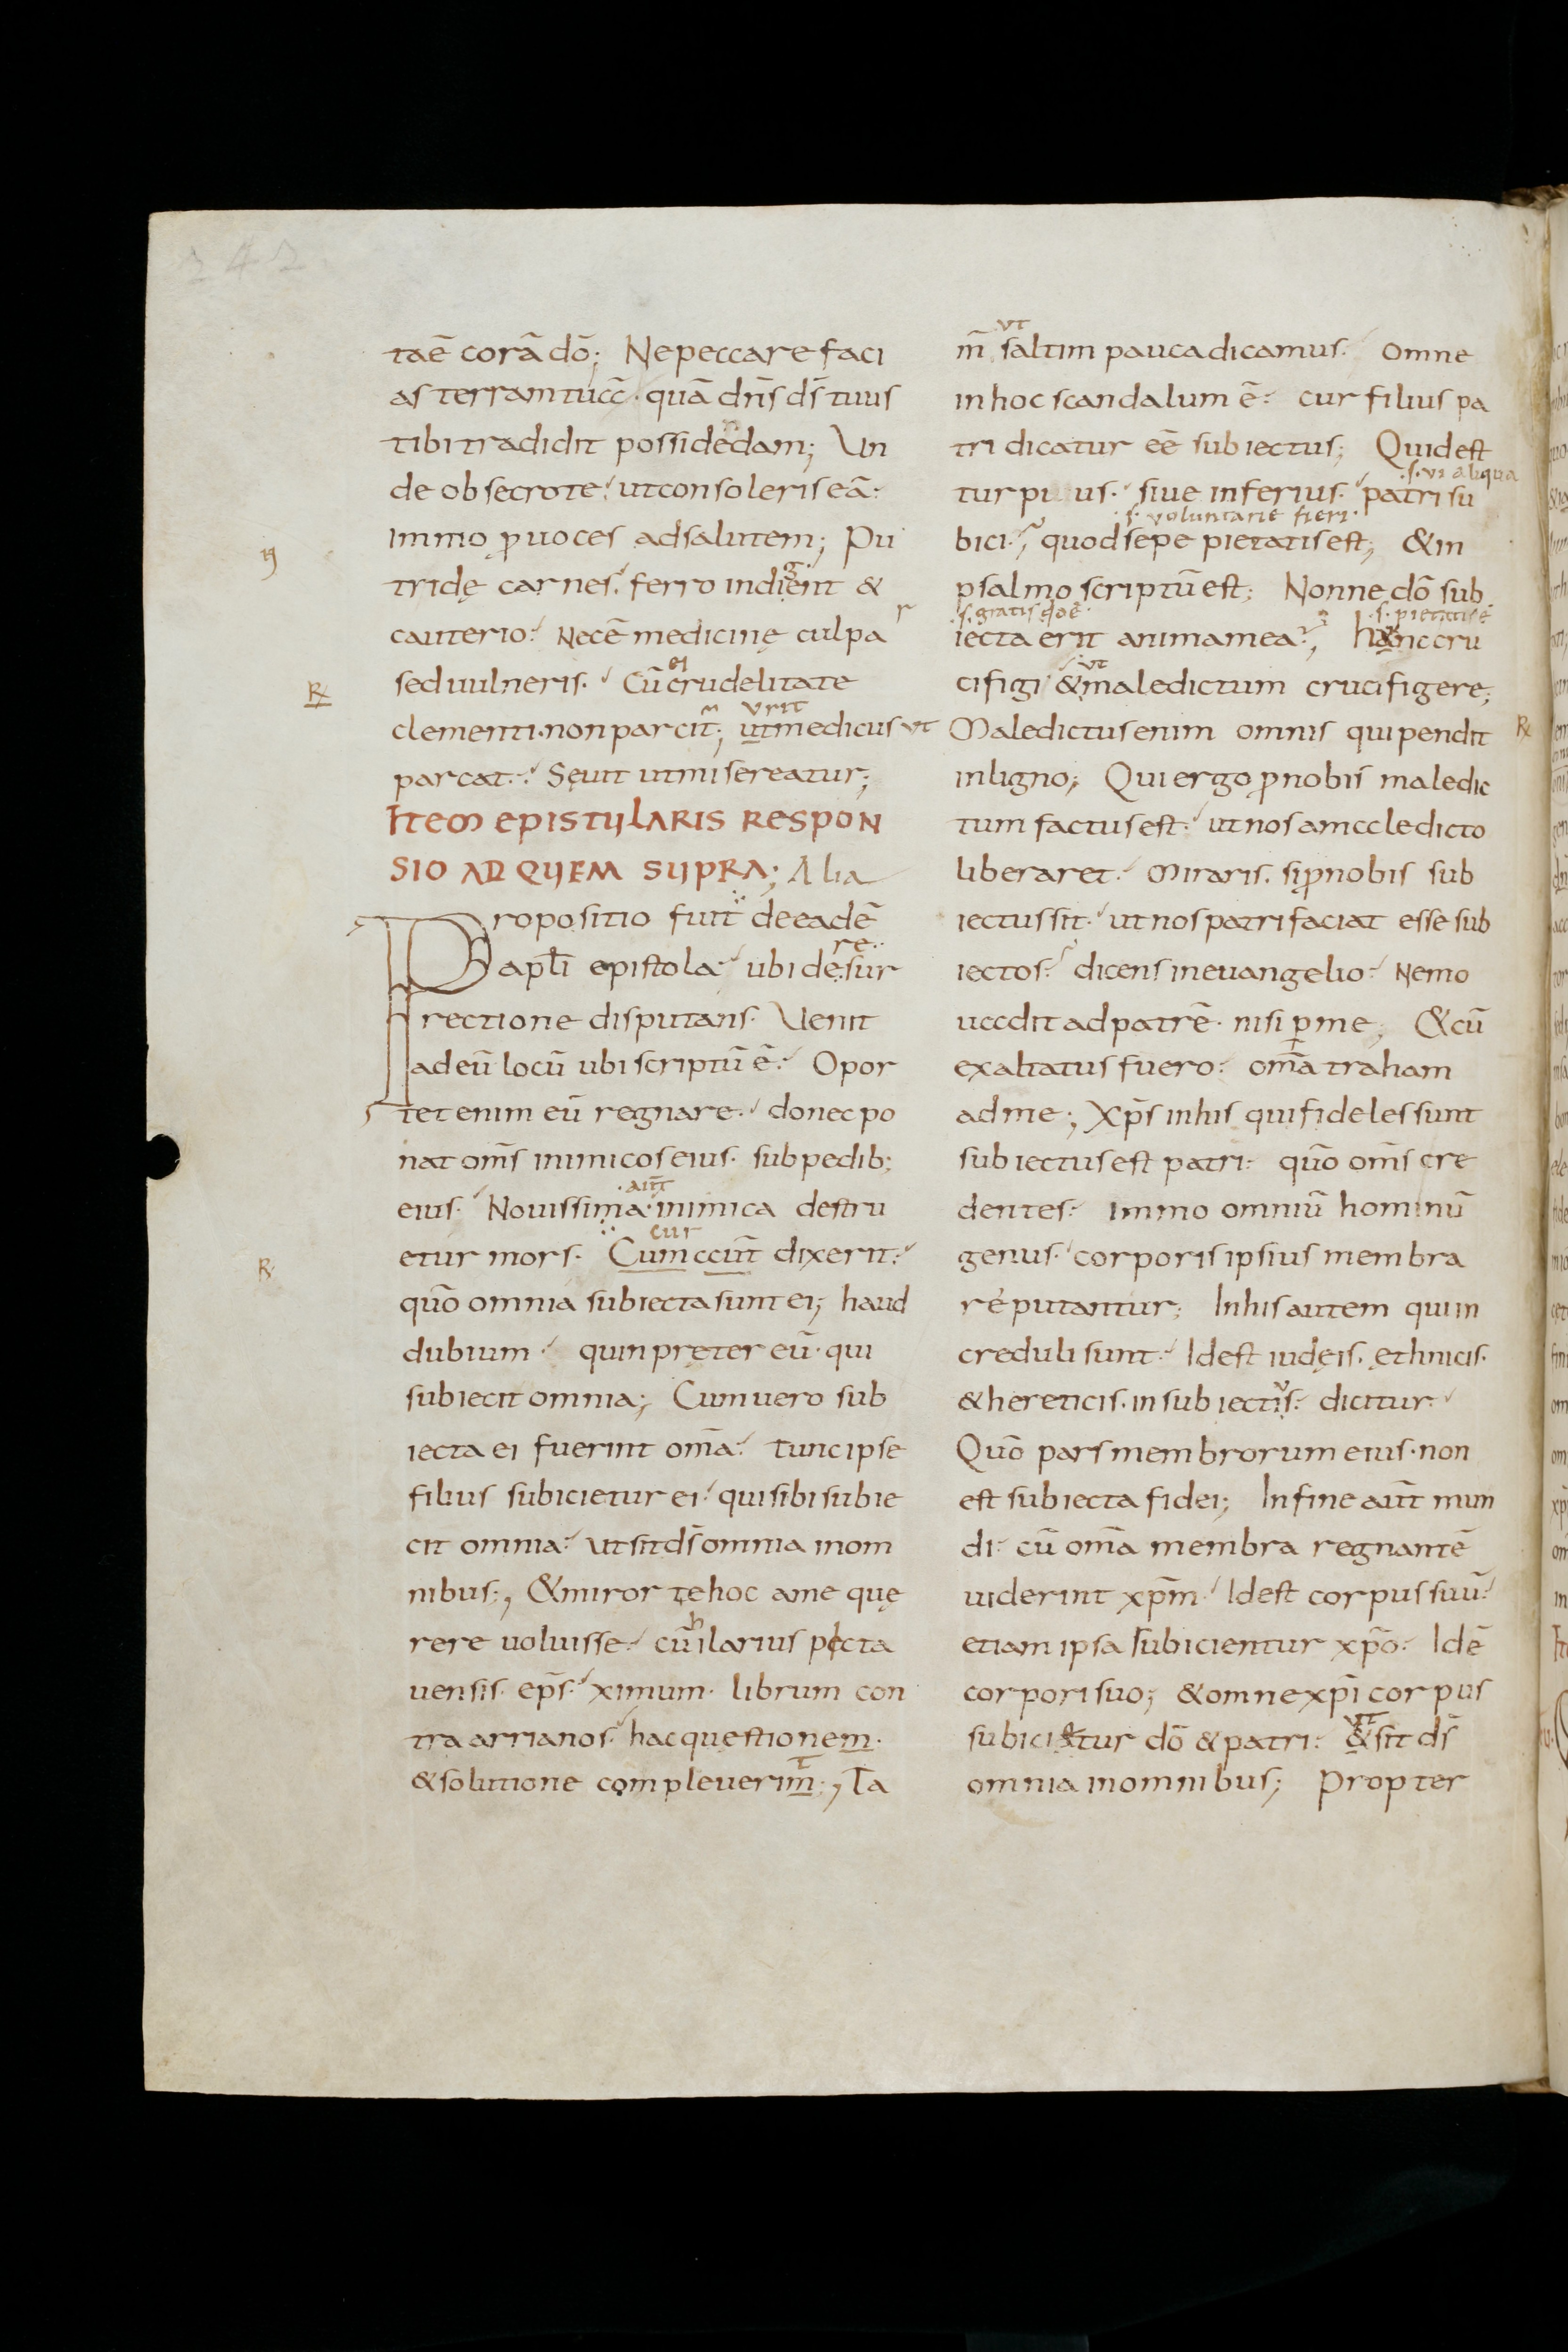 242
taē corā dō; Ne peccare faci
as terram tuā. quā dn̄s ds̄ tuus
tibi tradidit possidedam; Un
de obsecro te. ut consoleris eā:
immo ꝓuoces ad salutem; Pu
tridę carnes. ferro indient &
cauterio: Nec ē medicinę culpa
sed uulneris. Cū crudelitate
clementi. non parcit; ut medicus ut
parcat. Sęuit ut misereatur;
ITEM EPISTULARIS RESPON
SIO AD QUEM SUPRA; Alia
Propositio fuit de eadē
apl̄i epistola ubi de resur
rectione disputans. Uenit
ad eū locū ubi scriptū ē: Opor
tet enim eū regnare. donec po
nat om̄s inimicos eius. sub pedib;
eius. Nouissima aūt inimica destru
etur mors. Cum aūt dixerit:
quō omnia subiecta sunt ei; haud
dubium. quin pręter eū. qui
subiecit omnia; Cum uero sub
iecta ei fuerint om̄a: tunc ipse
filius subicietur ei. qui sibi subie
cit omnia: ut sit ds̄ omnia in om
nibus; & miror te hoc a me quę
rere uoluisse. cū hilarius picta
uensis. ep̄s. ximum. librum con
tra arrianos. hac questionem.
& solutione compleuerim; Ta
m̄ ut saltim pauca dicamus. Omne
in hoc scandalum ē: cur filius pa
tri dicatur eē subiectus; Quid est
.s. vi aliqua
turpius. siue inferius. patri su
.s. voluntarie fieri.
bici; quod sepe pietatis est; & in
psalmo scriptū est; Nonne dō sub
.s. pietatis ē
iecta erit anima mea; hanc cru
cifigi & ut maledictum crucifigere;
Maledictus enim omnis qui pendit
in ligno; Qui ergo ꝓ nobis maledic
tum factus est. ut nos a maledicto
liberaret. Miraris. si ꝓ nobis sub
iectus sit. ut nos patri faciat esse sub
iectos: dicens in euangelio: Nemo
uadit ad patrē. nisi ꝑ me; & cū
exaltatus fuero: om̄a traham
ad me; Xp̄s in his qui fideles sunt
subiectus est patri: quō om̄s cre
dentes: immo omniū hominū
genus. corporis ipsius membra
reputantur; In his autem qui in
creduli sunt. Id est iudęis. ethnicis.
& hereticis. insubiectus: dicitur.
Quō pars membrorum eius. non
est subiecta fidei; In fine aūt mun
di. cū om̄a membra regnantē
uiderint xp̄m. Id est corpus suū:
etiam ipsa subicientur xp̄o: Id ē
corpori suo; & omne xp̄i corpus
subicietur dō & patri: & ut sit ds̄
omnia in omnibus; Propter